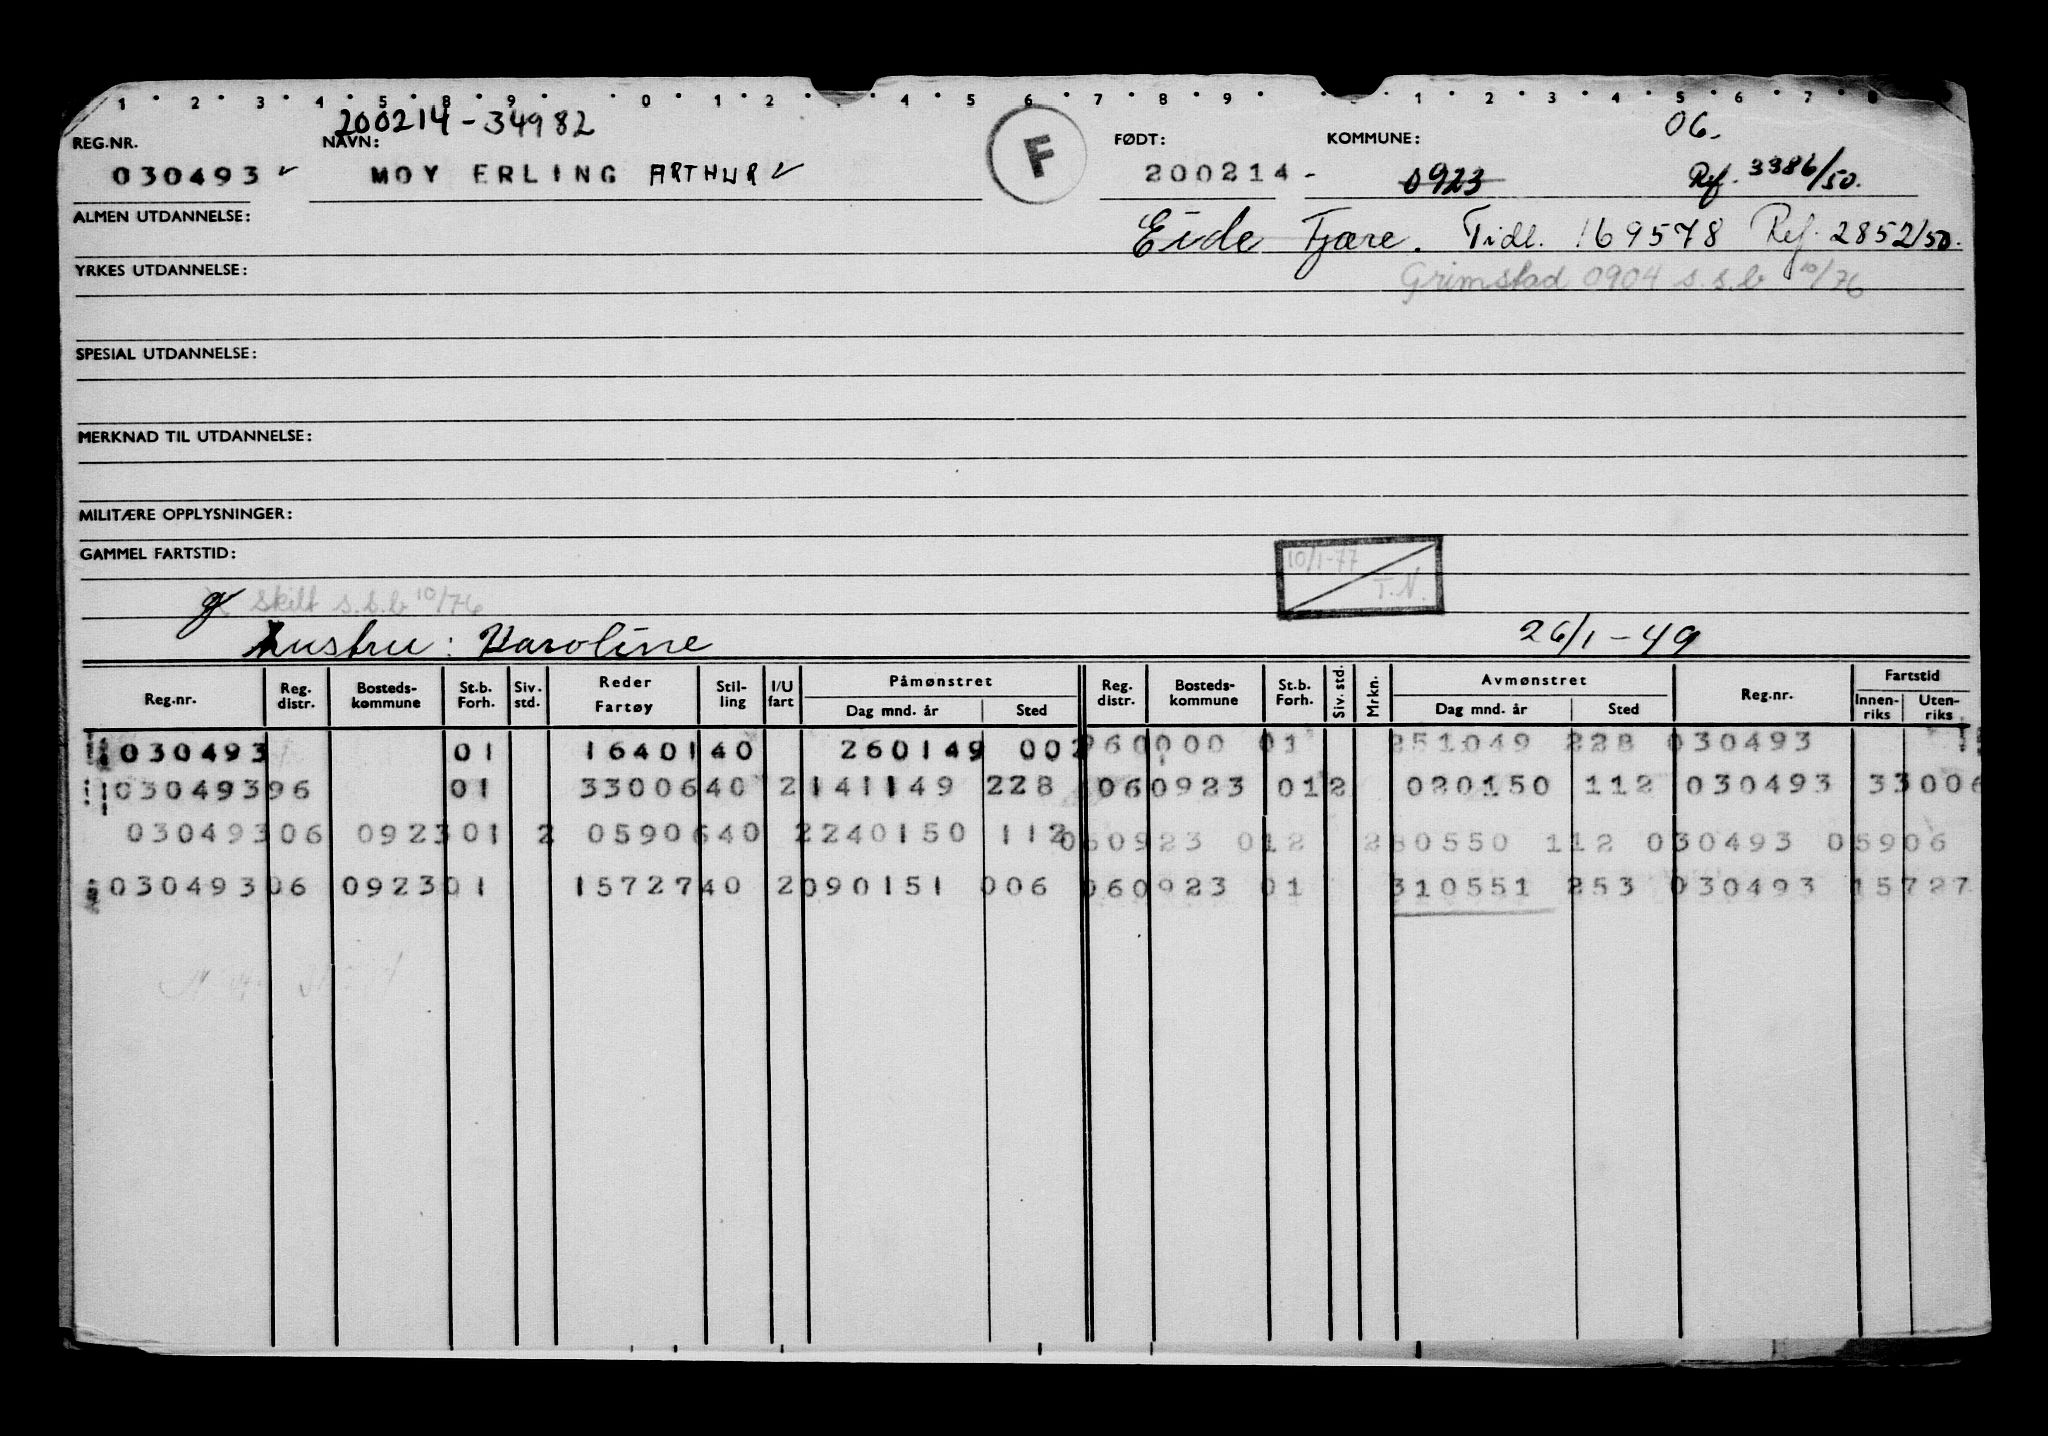 1 2 3 4 5 8 9 0 1 2 4 5 6 7 8 9 1 2 3 4 5 6 7 8
200214-34982 06.
REG.NR. NAVN: F FØDT: KOMMUNE:
030493 MOY ERLING ARTHUR 200214- 0923 Ref. 3386/50.
ALMEN UTDANNELSE: Eide Fjære. Tidl. 169578 Ref. 2852/50.
YRKES UTDANNELSE: Grimstad 0904 s.s.b 10/76
SPESIAL UTDANNELSE:
MERKNAD TIL UTDANNELSE:
MILITÆRE OPPLYSNINGER:
GAMMEL FARTSTID: 10/1-77
T.N.
g skilt s.s.b 10/76
hustru: Karoline 26/1-49
Reg.nr. Reg. distr. Bosteds-kommune St.b. Forh. Siv. std. Reder Fartøy Stil-ling I/U fart Påmønstret Dag mnd. år Sted Reg. distr. Bosteds-kommune St.b. Forh. Siv. std. Mrkn. Avmønstret Dag mnd. år Sted Reg.nr. Fartstid Innen-riks Uten-riks
030493 01 1640140 260149 002 960000 01 251049 228 030493
03049396 01 3300640 2141149 228 060923 012 020150 112 030493 33006
03049306 092301 2 0590640 2240150 112 060923 012 280550 112 030493 05906
03049306 092301 1572740 2090151 006 060923 01 310551 253 030493 15727